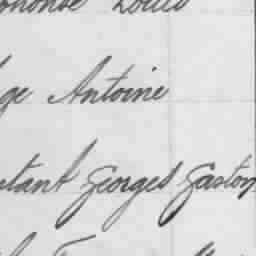 Louis
ge Antoine
stant Georges Gaston